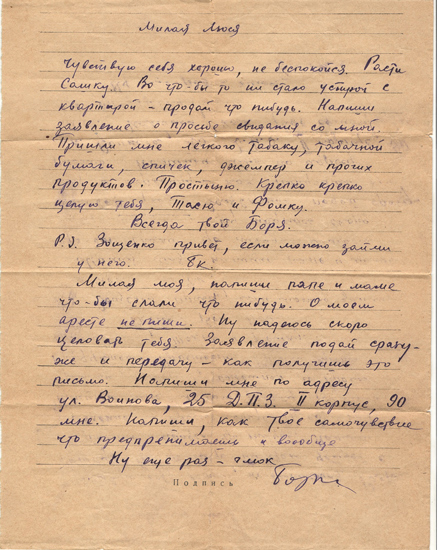 Милая Люся
Чувствую себя хорошо, не беспокойся. Расти
Сашку. Во что-бы то ни стало устрой с
квартирой – продай что нибудь. Напиши
заявление о просьбе свидания со мной.
Пришли мне лёгкого табаку, табачной
бумаги, спичек, джемпер и прочих
продуктов. Простыню. Крепко крепко
целую тебя, и Фомку.
Всегда твой Боря.
P.S. Зощенко привет, если можно займи
у него. БК.
Милая моя, напиши папе и маме
что-бы слали что нибудь. О моем
аресте не пиши. Ну надеюсь скоро
целовать тебя. Заявление подай сразу-
же и передачу – как получишь это
письмо. Напиши мне по адресу
ул. Воинова, 25 Д.П.З. II корпус, 90
мне. Напиши, как твое самочувствие
что предпринимаешь и вообще
Ну еще раз – чмок
Подпись